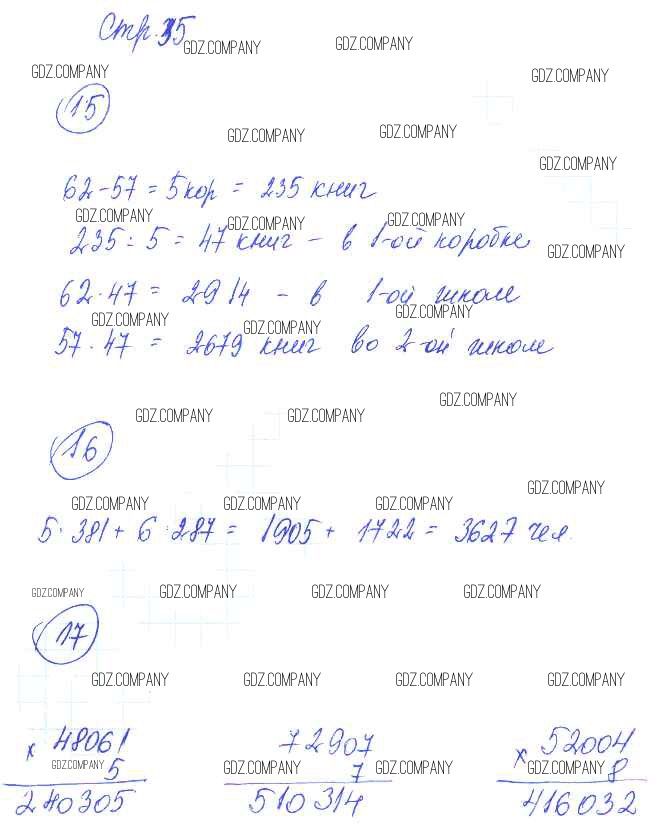 Стр. 35
GDZ.COMPANY GDZ.COMPANY
GDZ.COMPANY GDZ.COMPANY
15
GDZ.COMPANY GDZ.COMPANY
GDZ.COMPANY
62-57 = 5 кор = 235 книг
GDZ.COMPANY GDZ.COMPANY GDZ.COMPANY
235 : 5 = 47 книг - в 1-ой коробке
GDZ.COMPANY
62 · 47 = 2914 - в 1-ой школе
GDZ.COMPANY GDZ.COMPANY GDZ.COMPANY
57 · 47 = 2679 книг во 2-ой школе
GDZ.COMPANY
GDZ.COMPANY GDZ.COMPANY
16
GDZ.COMPANY
GDZ.COMPANY GDZ.COMPANY GDZ.COMPANY
5 · 381 + 6 · 287 = 1905 + 1722 = 3627 чел.
GDZ.COMPANY GDZ.COMPANY GDZ.COMPANY GDZ.COMPANY
17
GDZ.COMPANY GDZ.COMPANY GDZ.COMPANY GDZ.COMPANY
x 48061 72907 x 52004
GDZ.COMPANY 5 GDZ.COMPANY 7 GDZ.COMPANY GDZ.COMPANY 8
240305 510314 416032